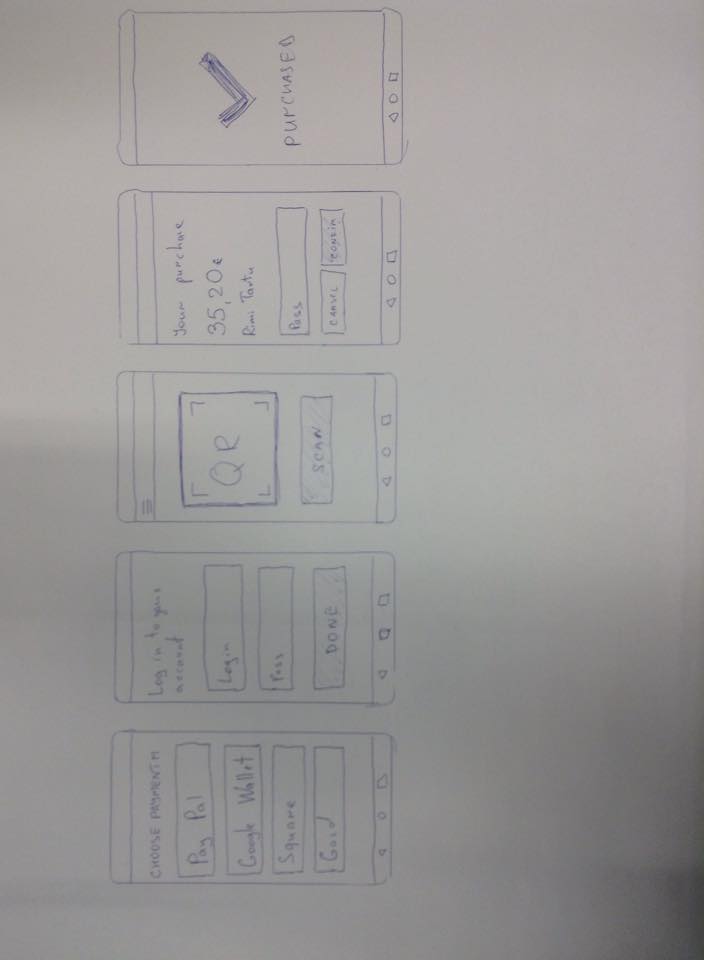 CHOOSE PAYMENT M
Pay Pal
Google Wallet
Square
Log in to your
account
Login
Pass
DONE
QR
SCAN
Your purchase
35,20€
Rimi Tartu
Pass
CANCEL
PURCHASED